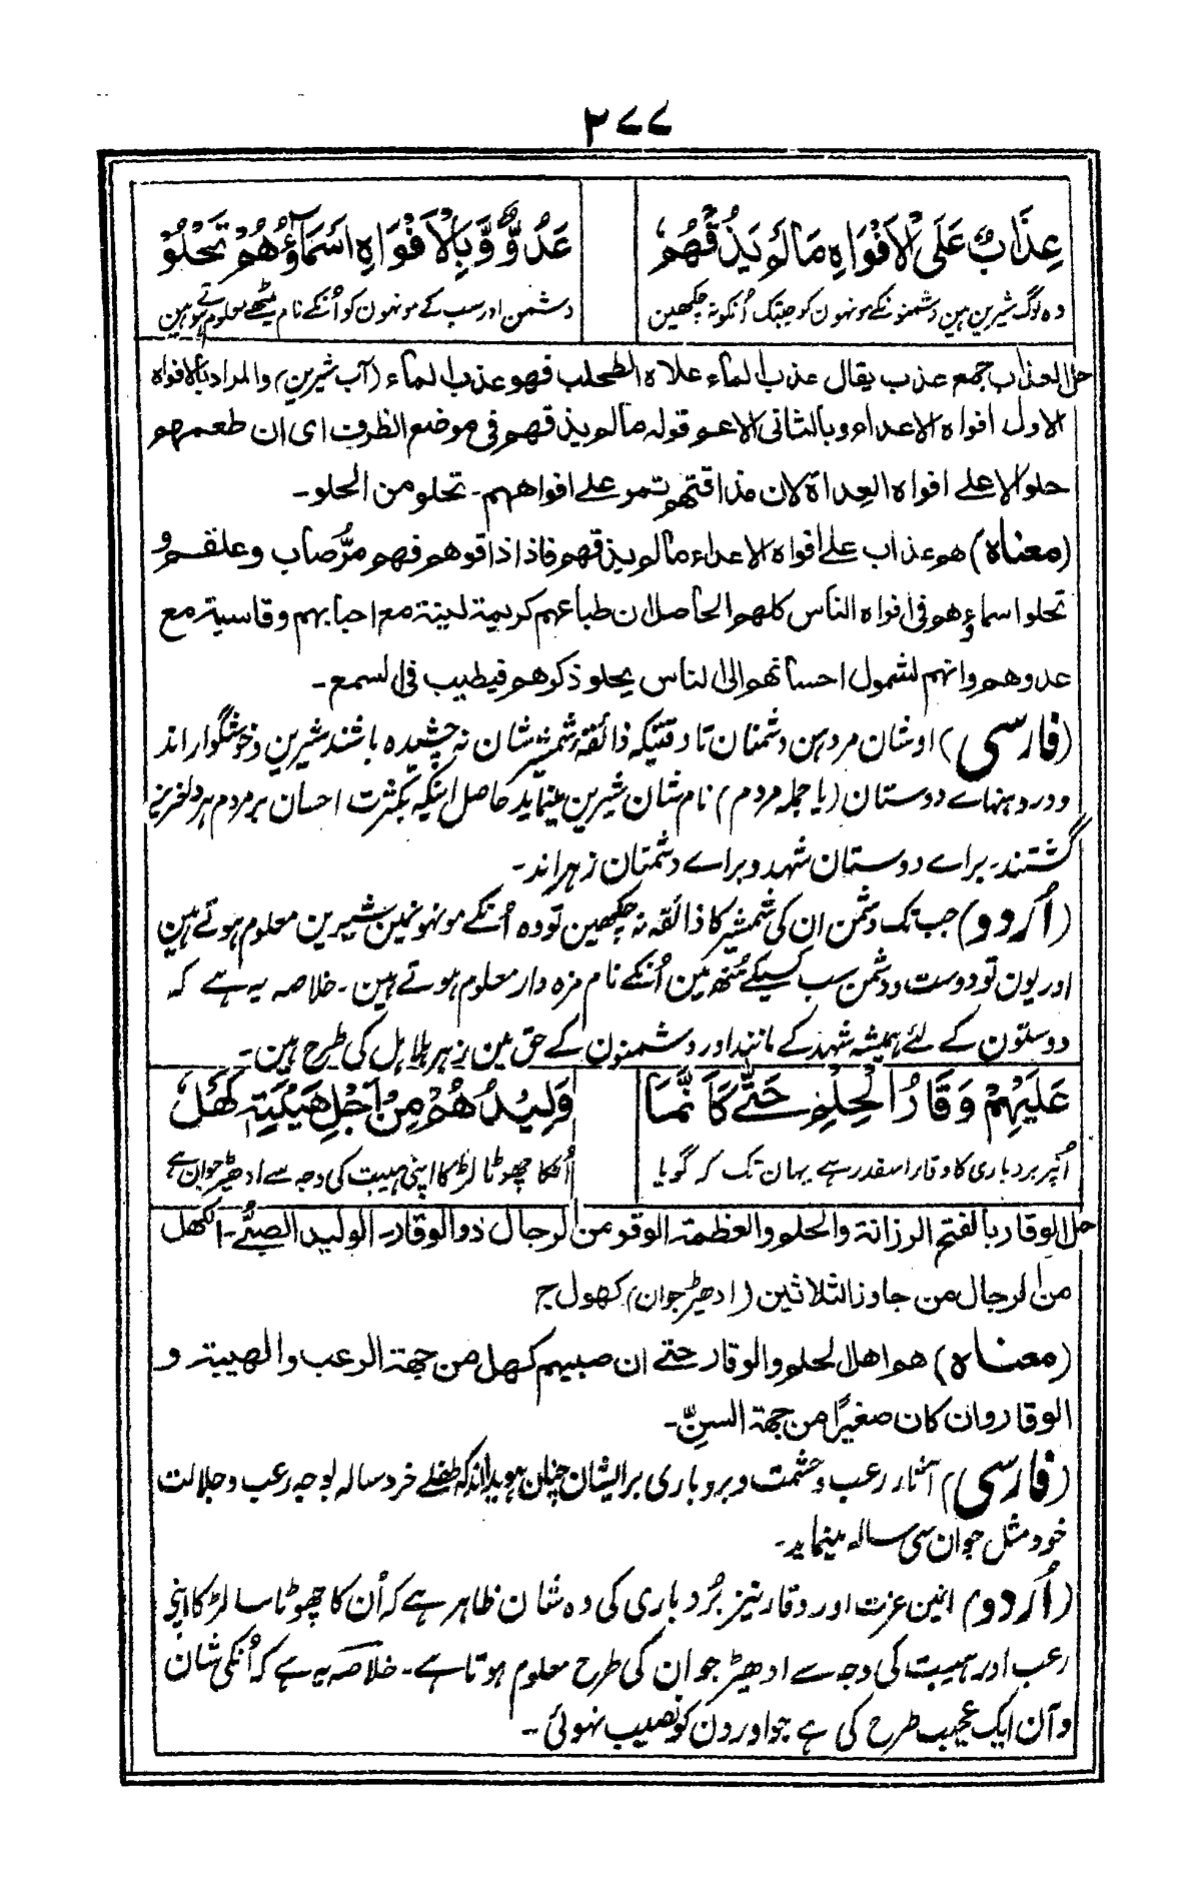 ۲۷۷
عِذَابٌ عَلَى الْاَفْوَاهِ مَا لَمْ يَذُقْهُمْ
عَدُوٌّ وَّبِالْاَفْوَاهِ اَسْمَآؤُهُمْ تَحْلُوْ
وہ لوگ شیرین ہین دشمنونکے مونہون کو جبتک اُنکو نہ چکھین
دشمن اور سب کے مونہون کو اُنکے نام میٹھے معلوم ہوتے ہین
حل العذاب جمع عذب یقال عذب الماء علاہ الطحلب فهو عذب الماء (آب شیرین) والمراد بالافواہ
الاول افواہ الاعداء وبالثانی الاعم قولہ مالم یذقهم فی موضع الظرف ای ان طعمهم
حلو الا علے افواہ العداة لان مذاقتهم تمر علے افواههم۔ تحلو من الحلو۔
(معناہ) هم عذاب علے افواہ الاعداء مالم یذقهم فاذا ذاقوهم فهم مرٌّ صاب وعلقم و
تحلوا سماؤهم فی افواہ الناس کلهم الحاصل ان طباعهم کریمة لینة مع احبابهم وقاسیة مع
عدوهم وانهم لشمول احسانهم الی الناس یحلو ذکرهم فیطیب فی السمع۔
(فارسی) اوشان مر دہن دشمنان تا وقتیکہ ذائقہ شمشیر شان نہ چشیدہ باشند شیرین و خوشگوار اند
و در دہنہاے دوستان (یا جملہ مردم) نام شان شیرین مینماید حاصل اینکہ بکثرت احسان بر مردم ہر دلعزیز
گشتند۔ براے دوستان شہد و براے دشمنان زہر اند۔
(اُردو) جب تک دشمن ان کی شمشیر کا ذائقہ نہ چکھین تو وہ اُنکے مونہونمین شیرین معلوم ہوتے ہین
اور یون تو دوست و دشمن سب کسیکے مُنھ مین اُنکے نام مزہ دار معلوم ہوتے ہین۔ خلاصہ یہ ہے کہ
دوستون کے لئے ہمیشہ شہد کے مانند اور دشمنون کے حق مین زہر ہلاہل کی طرح ہین۔
عَلَيْهِمْ وَقَارُ الْحِلْمِ حَتّٰے كَاَنَّمَا
وَلِيْدُهُمْ مِنْ اَجْلِ هَيْبَتِهٖ كَهْلٌ
اُنپر بردباری کا وقار اسقدر ہے یہان تک کہ گویا
اُنکا چھوٹا لڑکا اپنی ہیبت کی وجہ سے ادھیڑ جوان ہے
حل الوقار بالفتح الرزانة والحلم والعظمة الوقور من الرجال ذوالوقار۔ الولید الصبیّ۔ الکهل
من الرجال من جاوز الثلاثین (ادھیڑ جوان) کهول ج
(معناہ) هم اهل الحلم والوقار حتے ان صبیهم کهل من جهة الرعب والهیبة و
الوقار وان کان صغیرًا من جهة السنّ۔
(فارسی) آثار رعب و حشمت و بردباری بر ایشان چنان ہویدا اند کہ طفلے خرد سالہ بوجہ رعب و جلالت
خود مثل جوان سی سالہ مینماید۔
(اُردو) انین عزت اور وقار نیز بُردباری کی وہ شان ظاہر ہے کہ اُن کا چھوٹا سا لڑکا اپنی
رعب اور ہیبت کی وجہ سے ادھیڑ جوان کی طرح معلوم ہوتا ہے۔ خلاصہ یہ ہے کہ اُنکی شان
و آن ایک عجیب طرح کی ہے جو اورون کو نصیب نہوئی۔